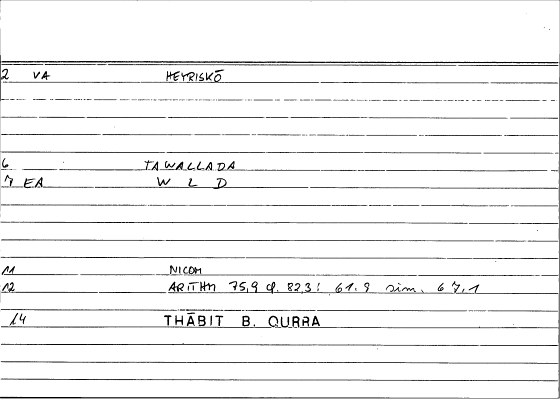 2 VA HEYRISKŌ
6 TAWALLADA
7 EA W L D
11 NICOM
12 ARITHM 75,9 cf. 82,3; 61.9 sim. 67,1
14 THĀBIT B. QURRA